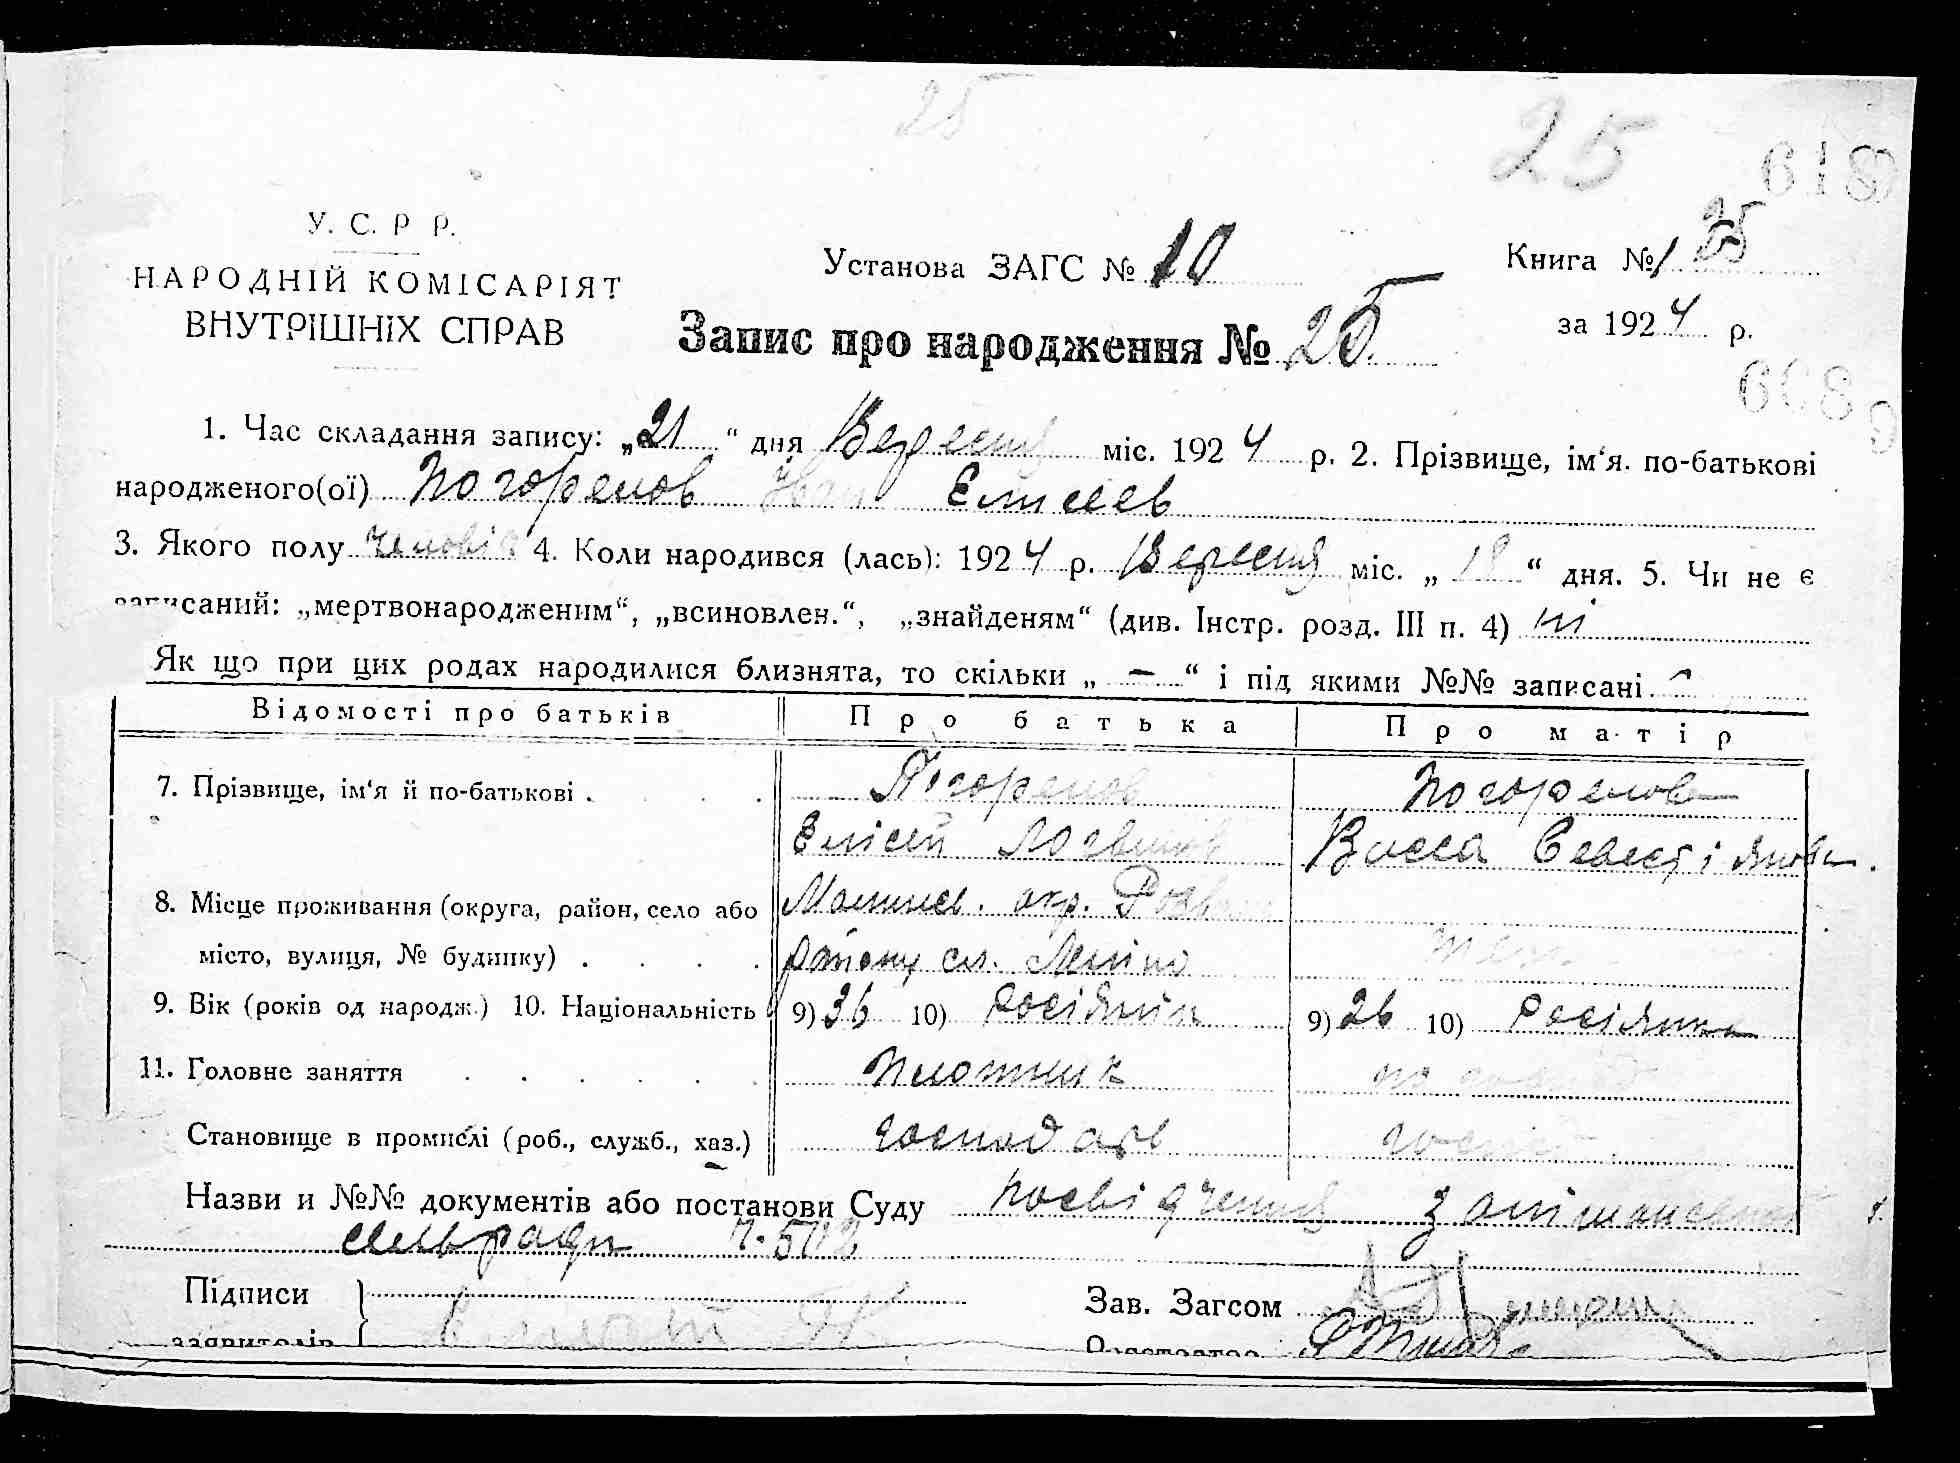 25
25
618
У. С. Р Р.
НАРОДНІЙ КОМІСАРІЯТ
ВНУТРІШНІХ СПРАВ
Установа ЗАГС № 10
Книга № 1 25
Запис про народження № 25.
за 1924 р.
608
1. Час складання запису: „21“ дня Вересня міс. 1924 р. 2. Прізвище, ім‘я. по-батькові
народженого(ої) Погорелов Іван Елисеев
3. Якого полу человік 4. Коли народився (лась): 1924 р. Вересня міс. „18“ дня. 5. Чи не є
записаний: „мертвонародженим“, „всиновлен.“, „знайденям“ (див. Інстр. розд. III п. 4) ні
Як що при цих родах народилися близнята, то скільки „ — “ і під якими №№ записані
Відомості про батьків Про батька Про матір
7. Прізвище, ім‘я й по-батькові . Погорелов Погорелова
Елісей Логвинов Васса Севестіянова.
8. Місце проживання (округа, район, село або окр.
місто, вулиця, № будинку) . району сл.
9. Вік (років од народж.) 10. Національність 9) 36 10) Росіянин 9) 26 10) Росіянка
11. Головне заняття Плотник
Становище в промислі (роб., служб., хаз.) господарь
Назви и №№ документів або постанови Суду посвідчення
сельради ч. 502
Підписи
заявителів
Зав. Загсом